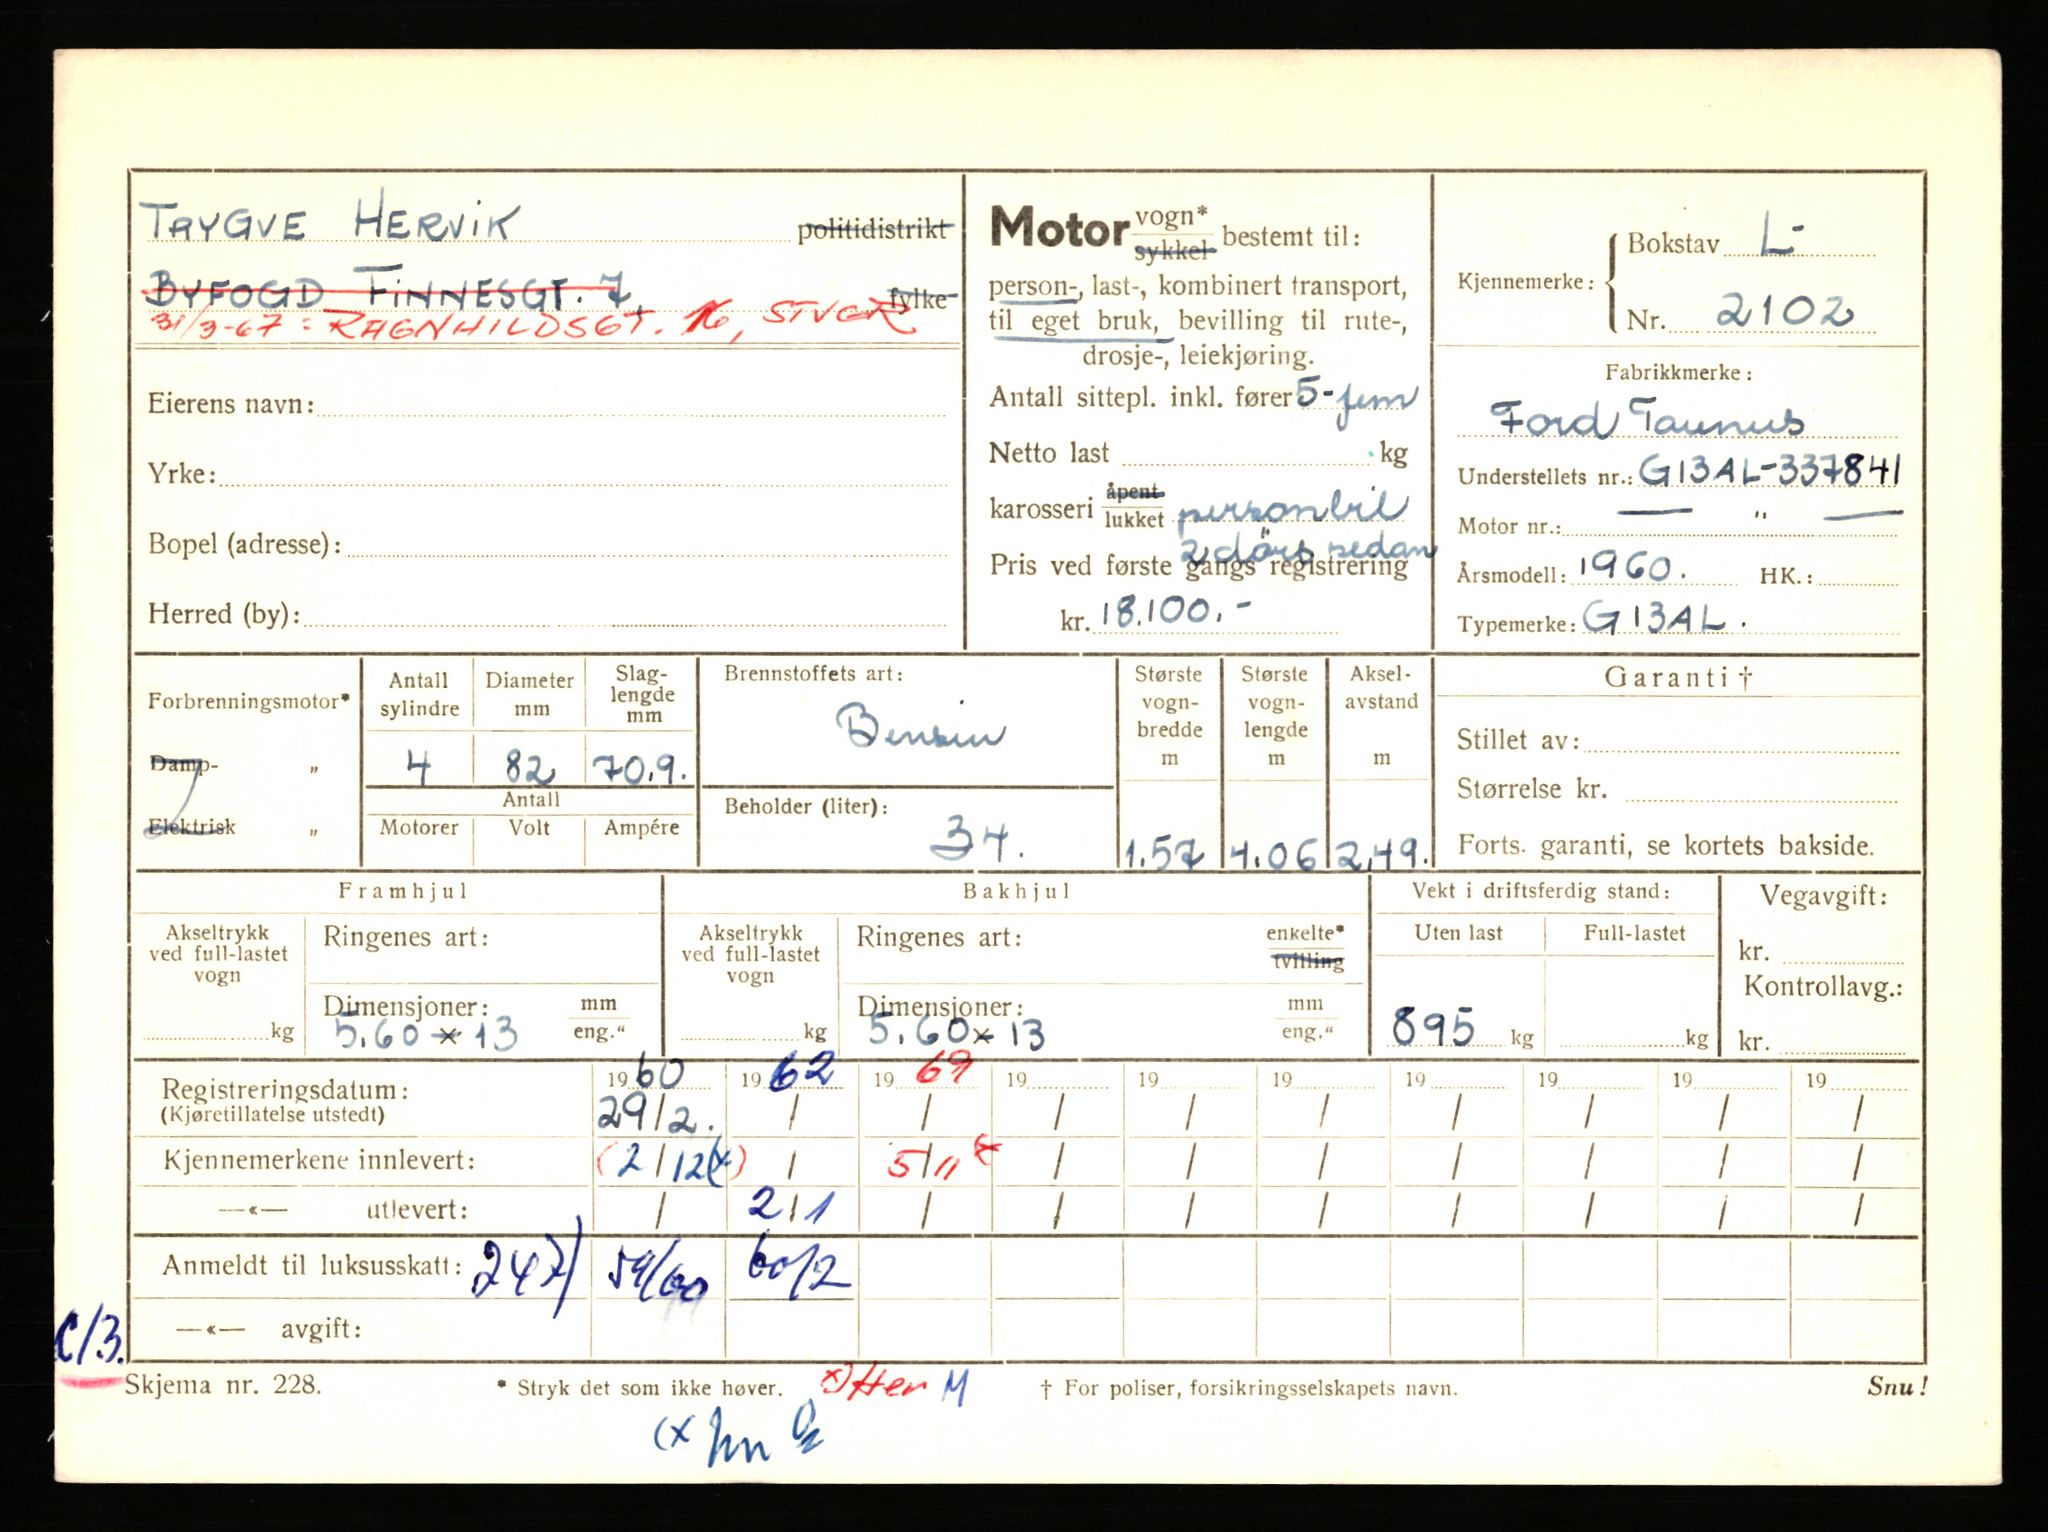 TRYGVE HERVIK politidistrikt
BYFOGD FINNESGT. 7, fylke
31/3-67: RAGNHILDSGT. 16, STVGR
Eierens navn:
Yrke:
Bopel (adresse):
Herred (by):
Motor vogn* sykkel bestemt til:
person-, last-, kombinert transport,
til eget bruk, bevilling til rute-,
drosje-, leiekjøring.
Antall sittepl. inkl. fører 5-fem
Netto last kg
karosseri åpent lukket personbil
2 dørs sedan
Pris ved første gangs registrering
kr. 18.100.-
Kjennemerke: Bokstav L-
Nr. 2102
Fabrikkmerke:
Ford Taunus
Understellets nr.: G13AL-337841
Motor nr.: — „ —
Årsmodell: 1960. HK.:
Typemerke: G13AL.
Forbrenningsmotor*
Damp- „
Elektrisk „
Antall sylindre Diameter mm Slag-lengde mm
4 82 70.9.
Antall
Motorer Volt Ampére
Brennstoffets art:
Bensin
Beholder (liter):
34.
Største vogn-bredde m Største vogn-lengde m Aksel-avstand m
1.57 4.06 2,49.
Garanti †
Stillet av:
Størrelse kr.
Forts. garanti, se kortets bakside.
Framhjul
Akseltrykk ved full-lastet vogn
kg
Ringenes art:
Dimensjoner: mm eng."
5.60 x 13
Bakhjul
Akseltrykk ved full-lastet vogn
kg
Ringenes art: enkelte* tvilling
Dimensjoner: mm eng."
5.60 x 13
Vekt i driftsferdig stand:
Uten last Full-lastet
895 kg kg
Vegavgift:
kr.
Kontrollavg.:
kr.
Registreringsdatum: 1960 1962 1969 19 19 19 19 19 19 19
(Kjøretillatelse utstedt) 29/2. / / / / / / / / /
Kjennemerkene innlevert: (2/12(x) / 5/11 x / / / / / / /
—«— utlevert: / 2/1 / / / / / / / /
Anmeldt til luksusskatt: 247) 59/60 60/2
—«— avgift:
C/3.
Skjema nr. 228. * Stryk det som ikke høver. x) Her M † For poliser, forsikringsselskapets navn. Snu!
(x